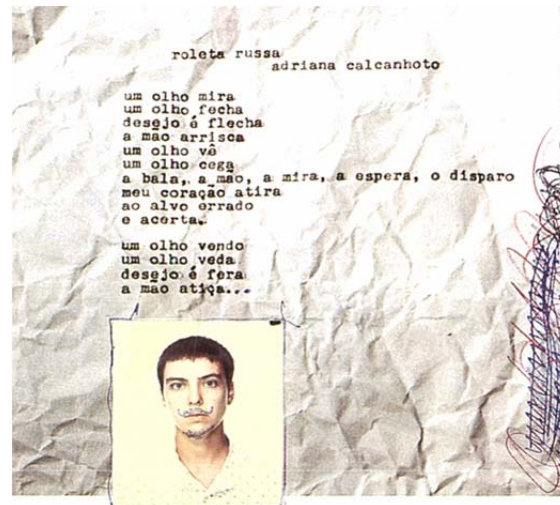 roleta russa
adriana calcanhoto
um olho mira
um olho fecha
desejo é flecha
a mão arrisca
um olho vê
um olho cega
a bala, a mão, a mira, a espera, o disparo
meu coração atira
ao alvo errado
e acerta.
um olho vendo
um olho veda
desejo é fera
a mao atiça...